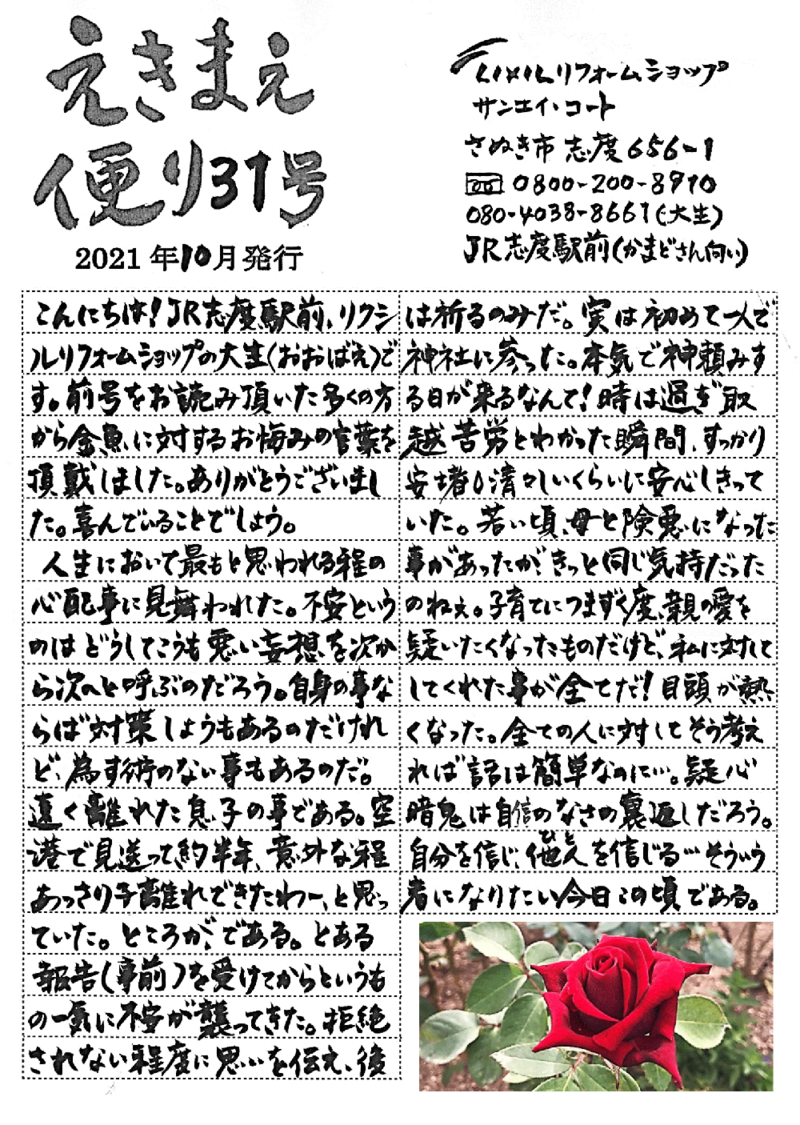 えきまえ
便り31号
2021年10月発行
LIXILリフォームショップ
サンエイ・コート
さぬき市志度656-1
0800-200-8910
080-4038-8661(大生)
JR志度駅前(かまどさん向い)
こんにちは!JR志度駅前、リクシ
ルリフォームショップの大生(おおばえ)で
す。前号をお読み頂いた多くの方
から金魚に対するお悔みの言葉を
頂戴しました。ありがとうございまし
た。喜んでいることでしょう。
人生において最もと思われる程の
心配事に見舞われた。不安という
のはどうしてこうも悪い妄想を次か
ら次へと呼ぶのだろう。自身の事な
らば対策しようもあるのだけれ
ど、為す術のない事もあるのだ。
遠く離れた息子の事である。空
港で見送って約半年、意外な程
あっさり子離れできたわー、と思っ
ていた。ところが、である。とある
報告(事前)を受けてからというも
の一気に不安が襲ってきた。拒絶
されない程度に思いを伝え、後
は祈るのみだ。実は初めて一人で
神社に参った。本気で神頼みす
る日が来るなんて!時は過ぎ取
越苦労とわかった瞬間、すっかり
安堵し清々しいくらいに安心しきって
いた。若い頃、母と険悪になった
事があったが、きっと同じ気持だった
のねぇ。子育てにつまずく度、親の愛を
疑いたくなったものだけど、私に対して
してくれた事が全てだ!目頭が熱
くなった。全ての人に対してそう考え
れば話は簡単なのに…。疑心
暗鬼は自信のなさの裏返しだろう。
自分を信じ、他人を信じる…そういう
者になりたい今日この頃である。